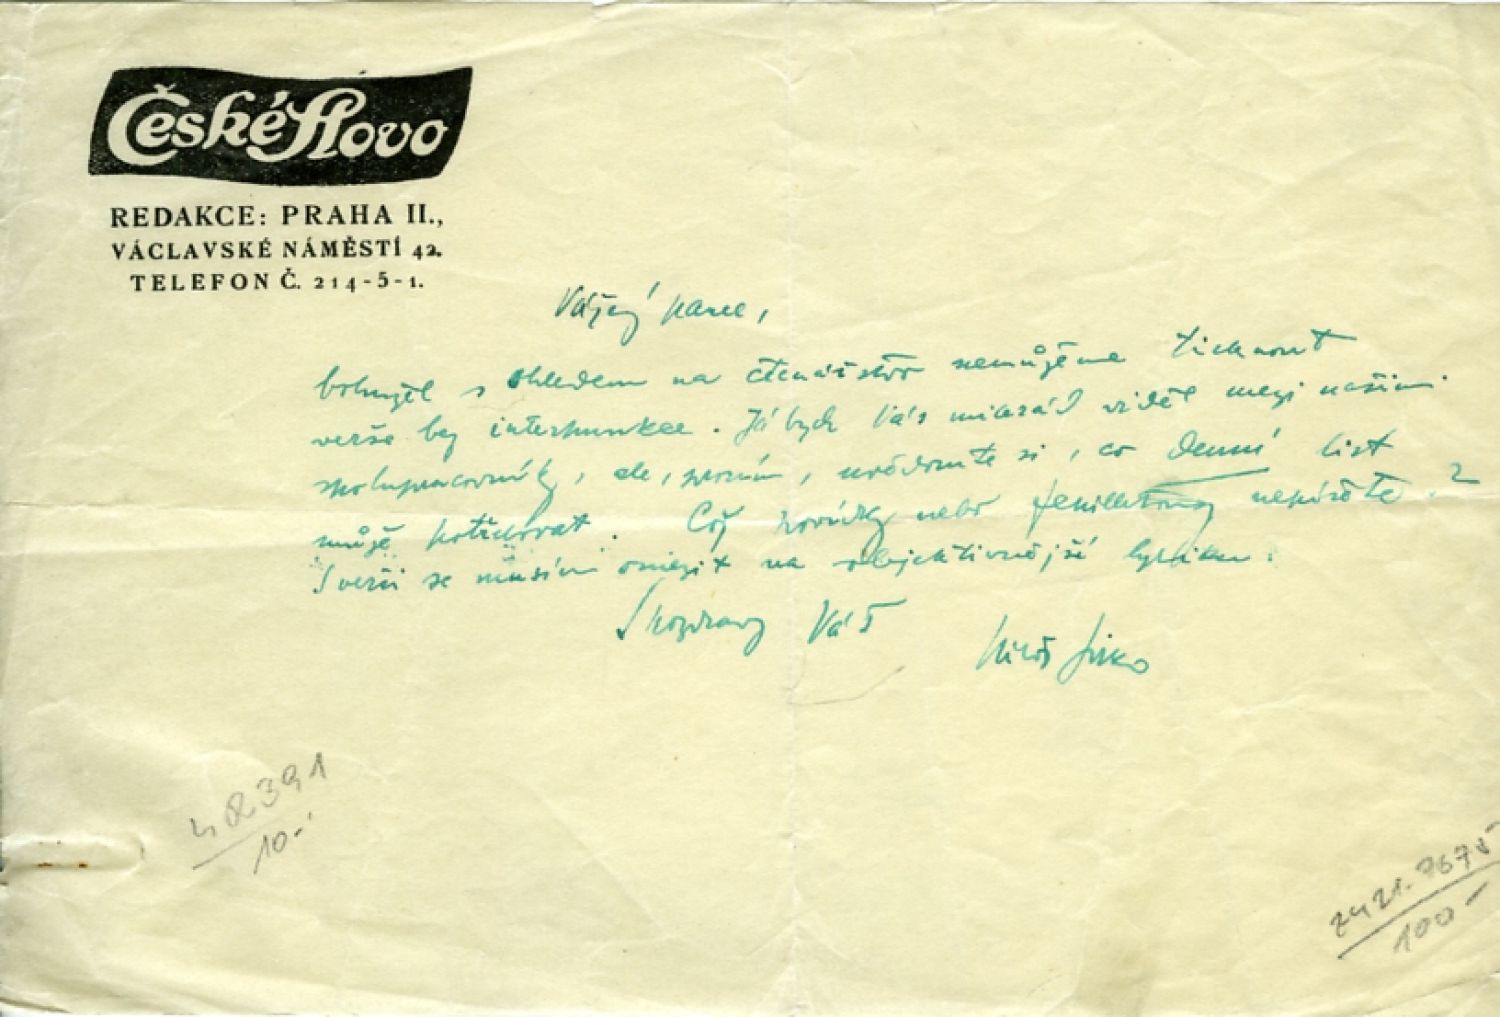 České Slovo
REDAKCE: PRAHA II.,
VÁCLAVSKÉ NÁMĚSTÍ 42.
TELEFON Č. 214-5-1.
Vážený pane,
bohužel s ohledem na čtenářstvo nemůžeme tisknout
verše bez interpunkce. Já bych Vás milerád viděl mezi našimi
spolupracovníky, ale, prosím, uvědomte si, co denní list
může potřebovat. Což povídky nebo feuilletony nepíšete?
I verši se musím omezit na objektivnější lyriku.
S pozdravy Váš
Miloš Jirko
391
10.-
100-